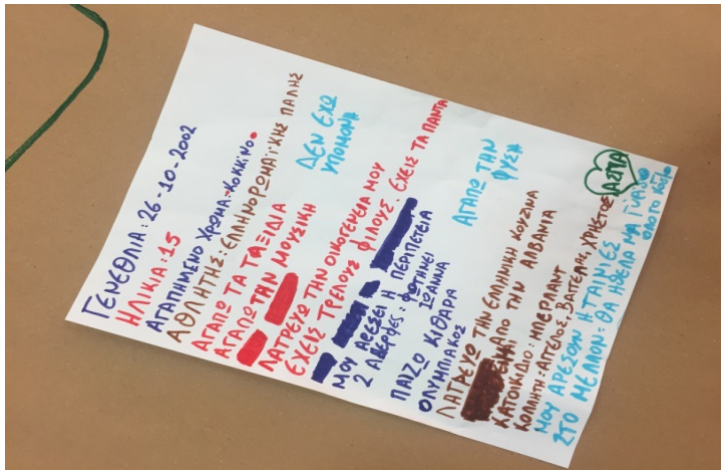 ΓΕΝΕΘΛΙΑ: 26-10-2002
ΗΛΙΚΙΑ: 15
ΑΓΑΠΗΜΕΝΟ ΧΡΩΜΑ: ΚΟΚΚΙΝΟ
ΑΘΛΗΤΗΣ: ΕΛΛΗΝΟΡΩΜΑΪΚΗΣ ΠΑΛΗΣ
ΑΓΑΠΩ ΤΑ ΤΑΞΙΔΙΑ
ΑΓΑΠΩ ΤΗΝ ΜΟΥΣΙΚΗ
ΔΕΝ ΕΧΩ
ΥΠΟΜΟΝΗ
ΛΑΤΡΕΥΩ ΤΗΝ ΟΙΚΟΓΕΝΕΙΑ ΜΟΥ
ΕΧΕΙΣ ΤΡΕΛΟΥΣ ΦΙΛΟΥΣ. ΕΧΕΙΣ ΤΑ ΠΑΝΤΑ
ΜΟΥ ΑΡΕΣΕΙ Η ΠΕΡΙΠΕΤΕΙΑ
2 ΑΔΕΡΦΕΣ: ΦΩΤΗΝΕΙ
ΙΩΑΝΝΑ
ΠΑΙΖΩ ΚΙΘΑΡΑ
ΟΛΥΜΠΙΑΚΟΣ
ΑΓΑΠΩ ΤΗΝ
ΦΥΣΗ
ΛΑΤΡΕΥΩ ΤΗΝ ΕΛΛΗΝΙΚΗ ΚΟΥΖΙΝΑ
ΑΠΟ ΤΗΝ ΑΛΒΑΝΙΑ
ΚΑΤΟΙΚΙΔΙΟ:
ΚΟΛΛΗΤΗ: ΑΓΓΕΛΟΣ, ΒΑΓΓΕΛΗΣ, ΧΡΗΣΤΟΣ
ΜΟΥ ΑΡΕΣΟΥΝ Η ΤΑΙΝΙΕΣ
ΣΤΟ ΜΕΛΛΟΝ: ΘΑ ΗΘΕΛΑ ΝΑ ΓΥΡΙΣΩ
ΟΛΟ ΤΟ